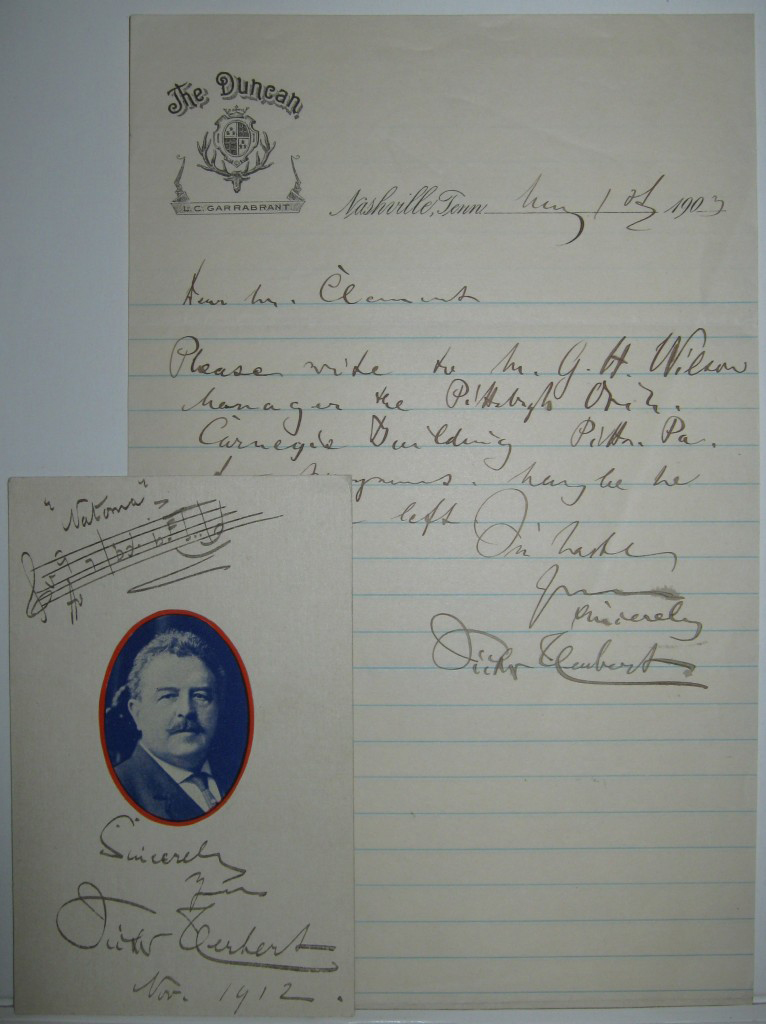 The Duncan
L.C. GARRABRANT
Nashville, Tenn May 1st 1903
Dear Mr. Clement
Please write to Mr. G. H. Wilson
Manager the Pittsburgh Orch.
Carnegie Building Pittsb. Pa.
for programs. Maybe he
left
In haste
Yours
sincerely
Victor Herbert
"Natoma"
Sincerely
Yours
Victor Herbert
Nov. 1912.